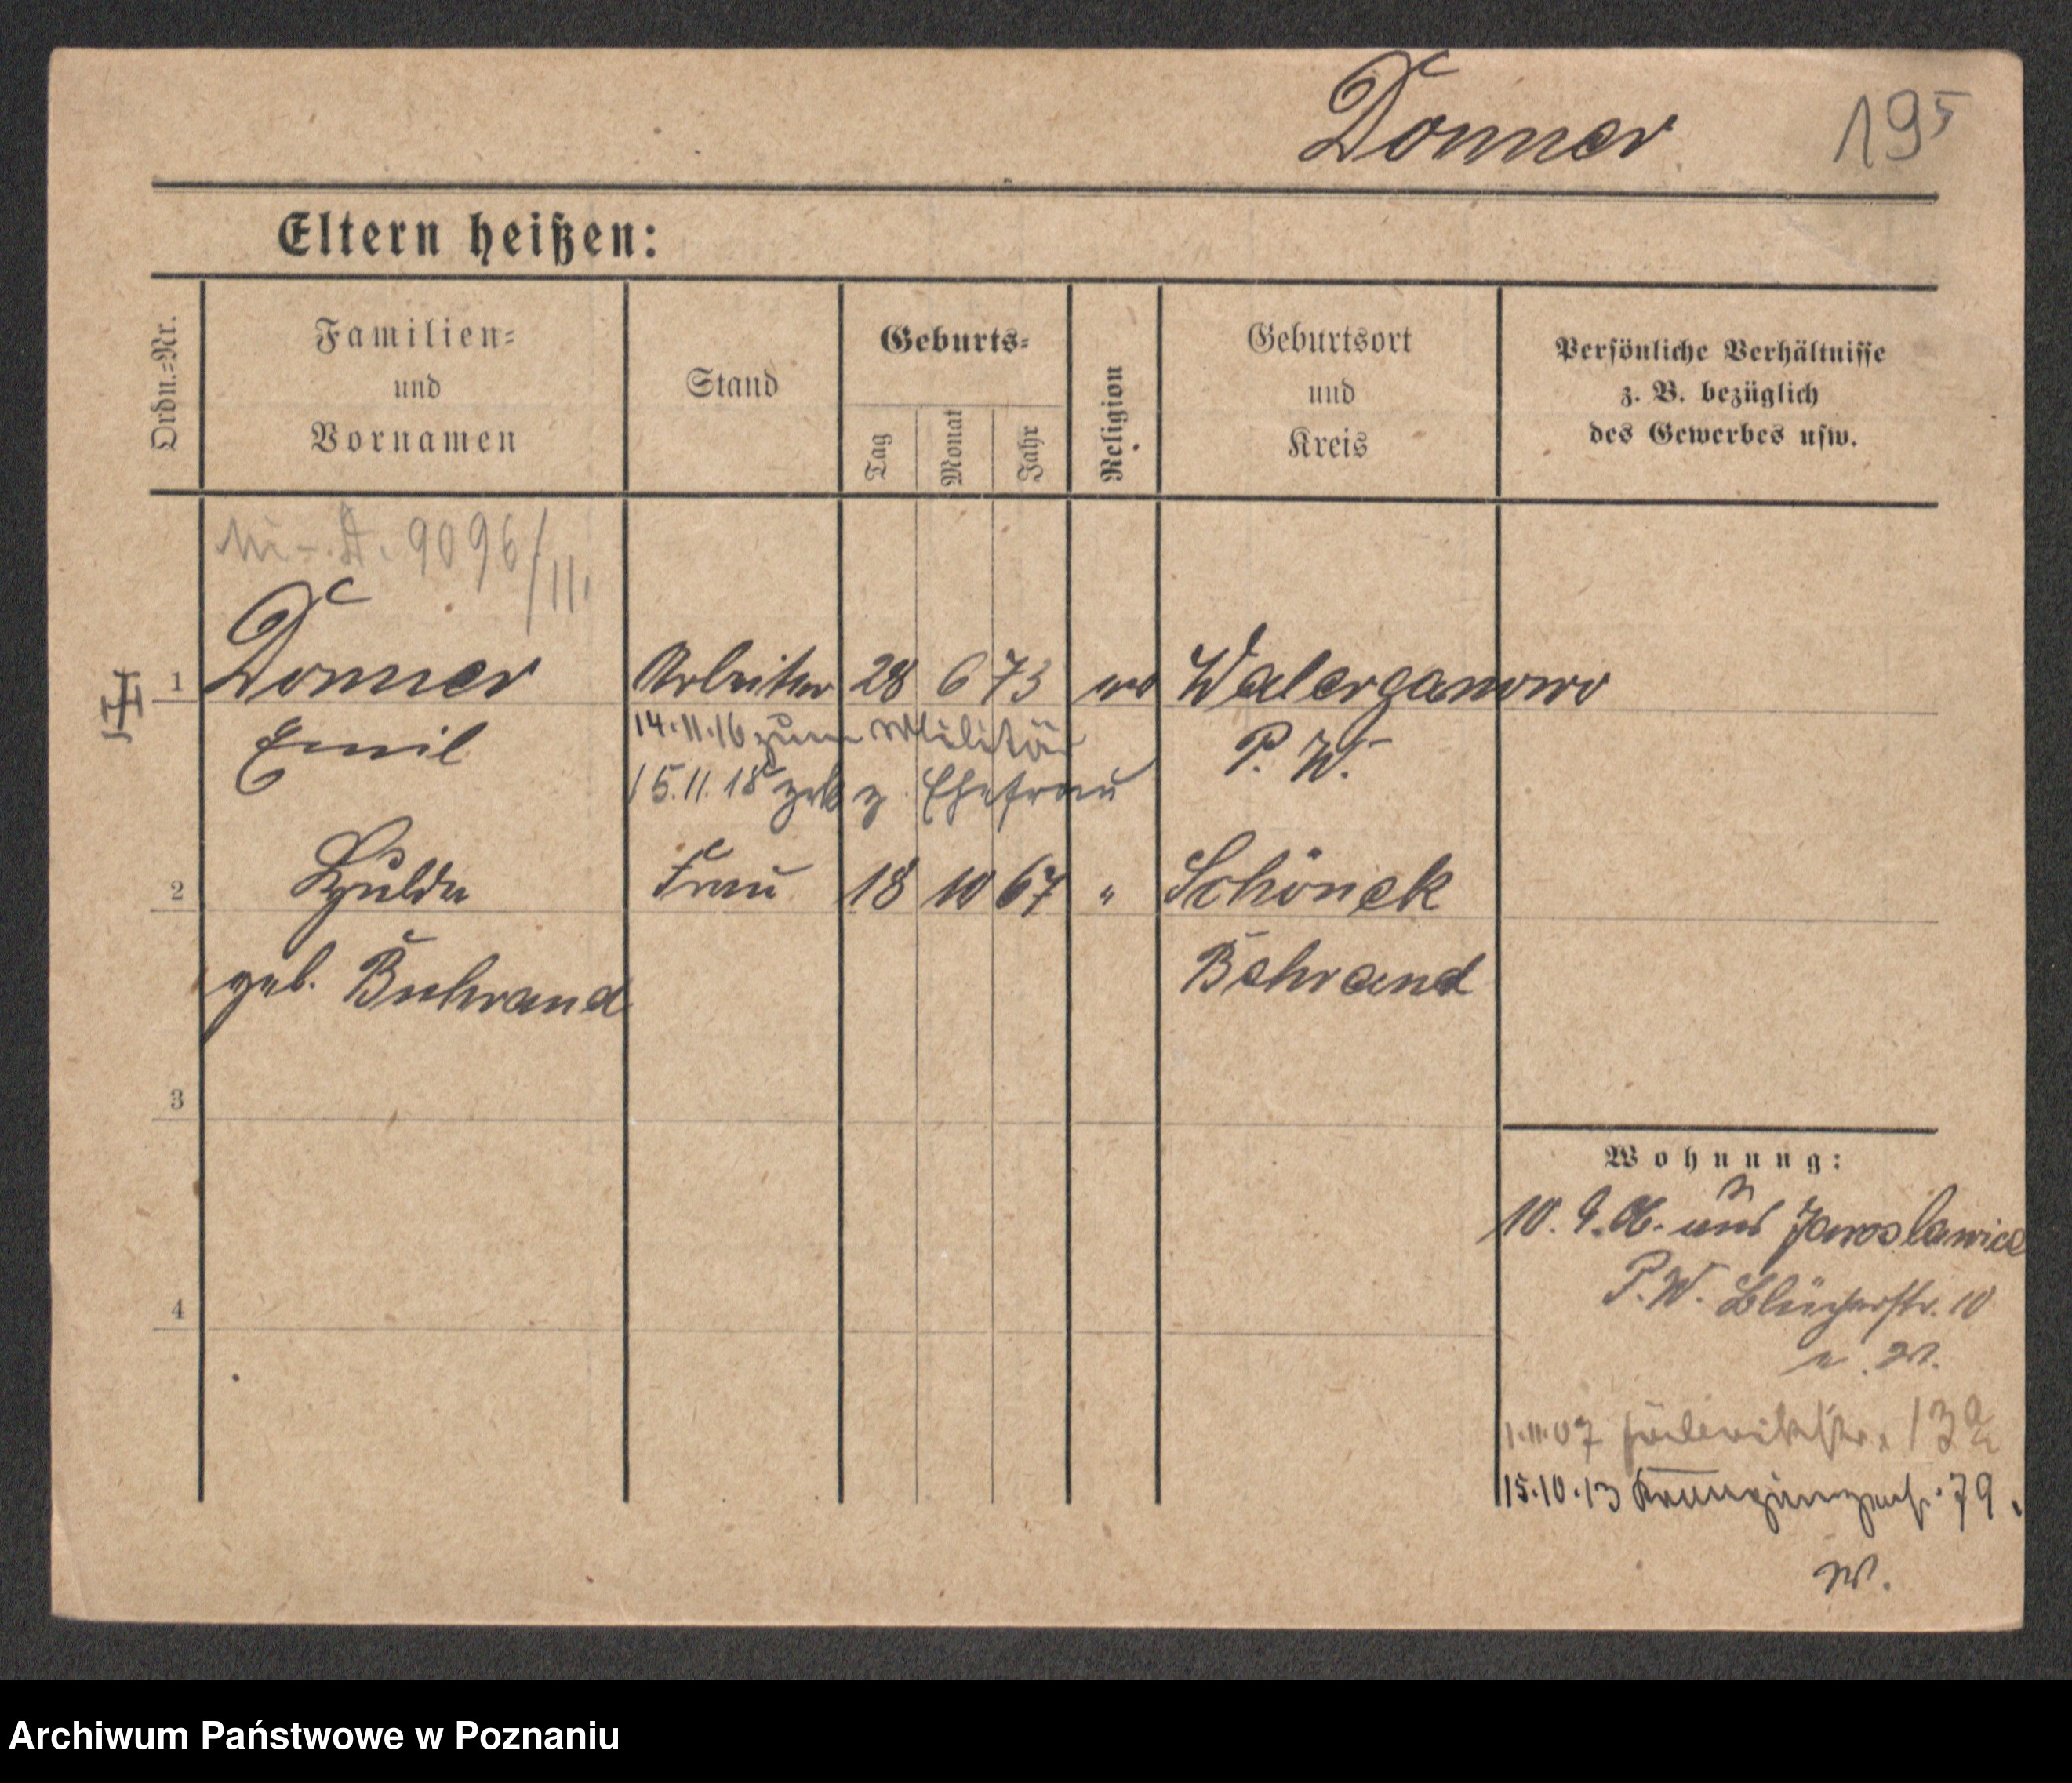 Donner 195
Eltern heißen:
Ordn.-Nr.
Familien-
und
Vornamen
Stand
Geburts-
Tag
Monat
Jahr
Religion
Geburtsort
und
Kreis
Persönliche Verhältnisse
z. B. bezüglich
des Gewerbes usw.
9096/III
1 Donner Arbeiter 28 6 73 Walerganowo
Emil 14.11.16 zum Militär P. W.
15.11.18 z. Ehefrau
2 Hulda Frau 18 10 67 " Schöneck
geb. Behrend Behrend
3
Wohnung:
10. 9. 06. aus Jaroslawice
P. W. Blücherstr. 10
4
1.11.07 13a
15.10.13 79.
W.
Archiwum Państwowe w Poznaniu